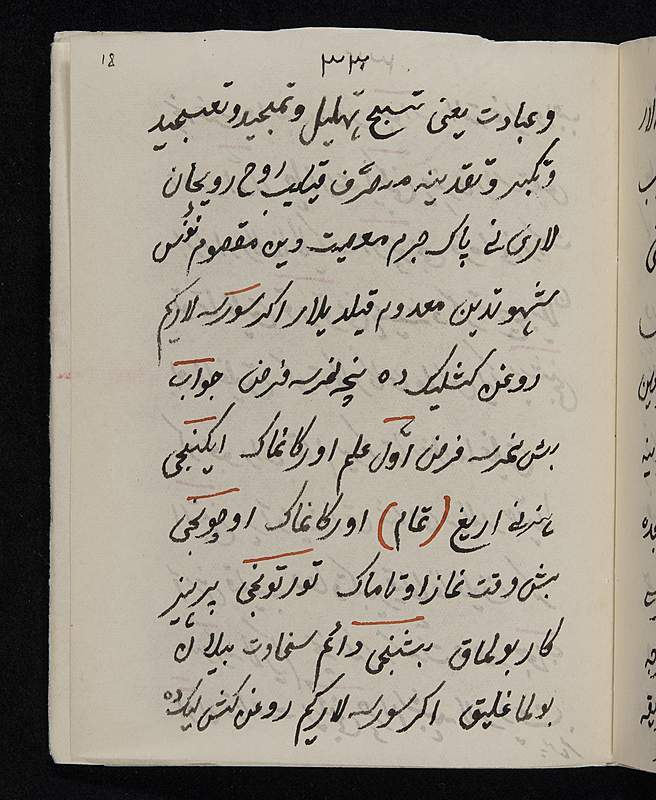 18
٣٣
وعبادت یعنی تسبیح تهلیل و تمجید و تعبجید
و تکبیر و تقدینه مصرف قیلیب روح رویحان
لاری نی پاک جرم معصیت دین معصوم نفس
شهوتدین معدوم قیلدیلار اکر سورسه لارکیم
روغن کشلیک ده نچه نمرسه فرض جواب
بش نمرسه فرض اول علم اورکانماک ایکنجی
اریغ (تمام) اورکانماک اوچونجی
بش وقت نماز اوتاماک تورتونجی پرهیز
کار بولماق بشنجی دائم سخاوت بیلان
بولماغلیق اکر سورسه لارکیم روغن کشلیک ده